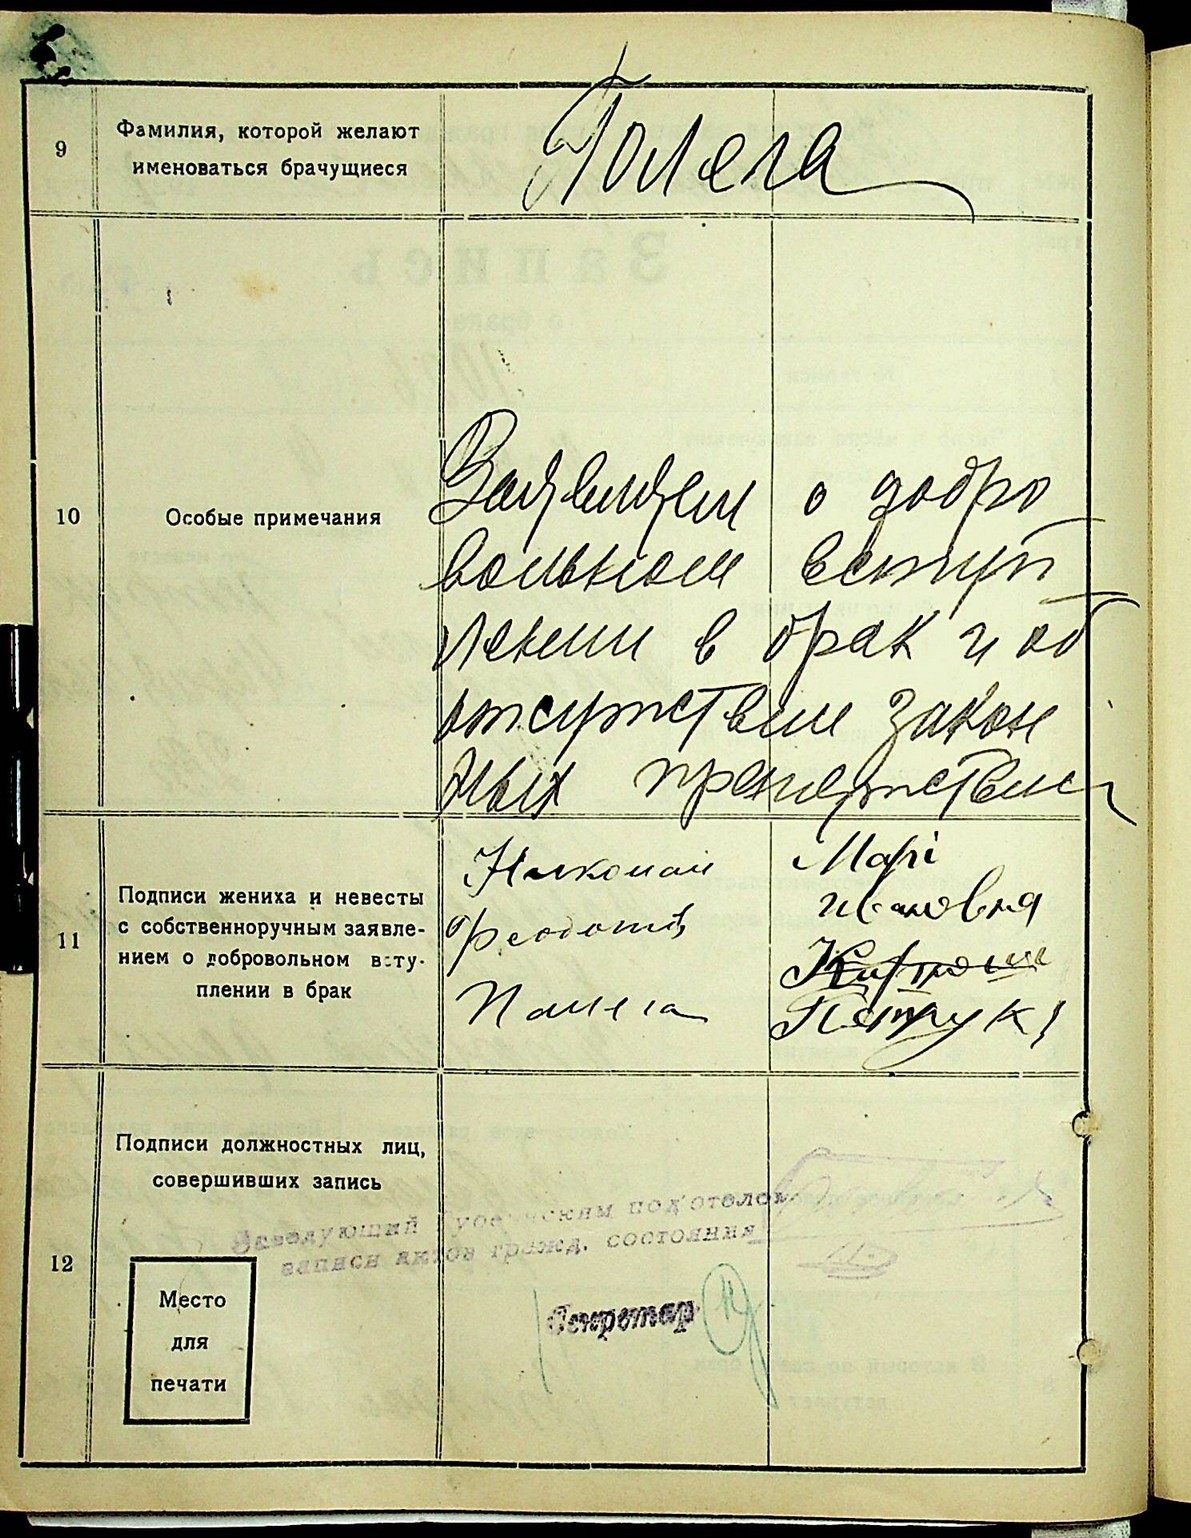 9
Фамилия, которой желают
именоваться брачущиеся
Полега
10
Особые примечания
Заявили о добро
вольном вступ
лении в брак и об
отсутствии закон
ных препятствий
11
Подписи жениха и невесты
с собственноручным заявле-
нием о добровольном всту-
плении в брак
Николай
Феодотов
Полега
Марі
Ивановна
Петрук
12
Подписи должностных лиц,
совершивших запись
Заведующий Губернским под'отделом
записи актов гражд. состояния
Секретар
Место
для
печати